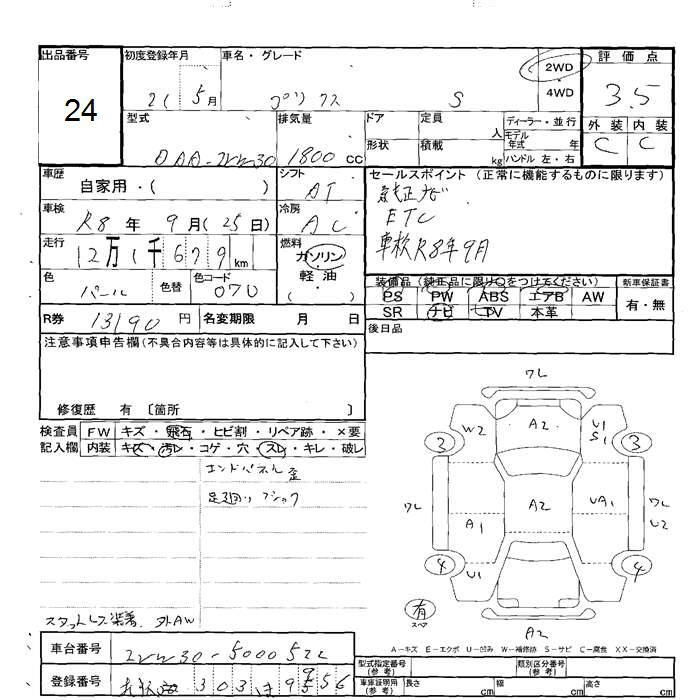 出品番号 初度登録年月 車名・グレード 2WD 評価点
24 21 5月 プリウス S ・ 4WD 3.5
型式 排気量 ドア 定員 人 ディーラー・並行 外装 内装
DAA-ZVW30 1800cc 形状 積載 kg モデル年式 年 ハンドル 左・右 C C
車歴 自家用・( ) シフト AT セールスポイント (正常に機能するものに限ります)
車検 R8年 9月(25日) 冷房 AC 純正ナビ
ETC
走行 12万1千679km 燃料 ガソリン・軽油・( ) 車検R8年9月
色 パール 色替 色コード 070 装備品 (純正品に限り○をつけてください) 新車保証書
PS PW ABS エアB AW 有・無
R券 13190円 名変期限 月 日 SR ナビ TV 本革
後日品
注意事項申告欄(不具合内容等は具体的に記入して下さい)
修復歴 有 〔箇所 〕
検査員 FW キズ・飛石・ヒビ割・リペア跡・×要
記入欄 内装 キズ・汚レ・コゲ・穴・スレ・キレ・破レ
エンドパネル歪
足廻り ショック
スタットレス装着 外AW
ワレ
W2 A2 U1 S1
3 3
ワレ A1 A2 UA1 ワレ U2
4 U1 4
有 スペア
A2
A-キズ E-エクボ U-凹み W-補修跡 S-サビ C-腐食 XX-交換済
車台番号 ZVW30-5000522 型式指定番号(参考) 類別区分番号(参考)
登録番号 303 ほ 9556 車庫証明用(参考) 長さ cm 幅 cm 高さ cm